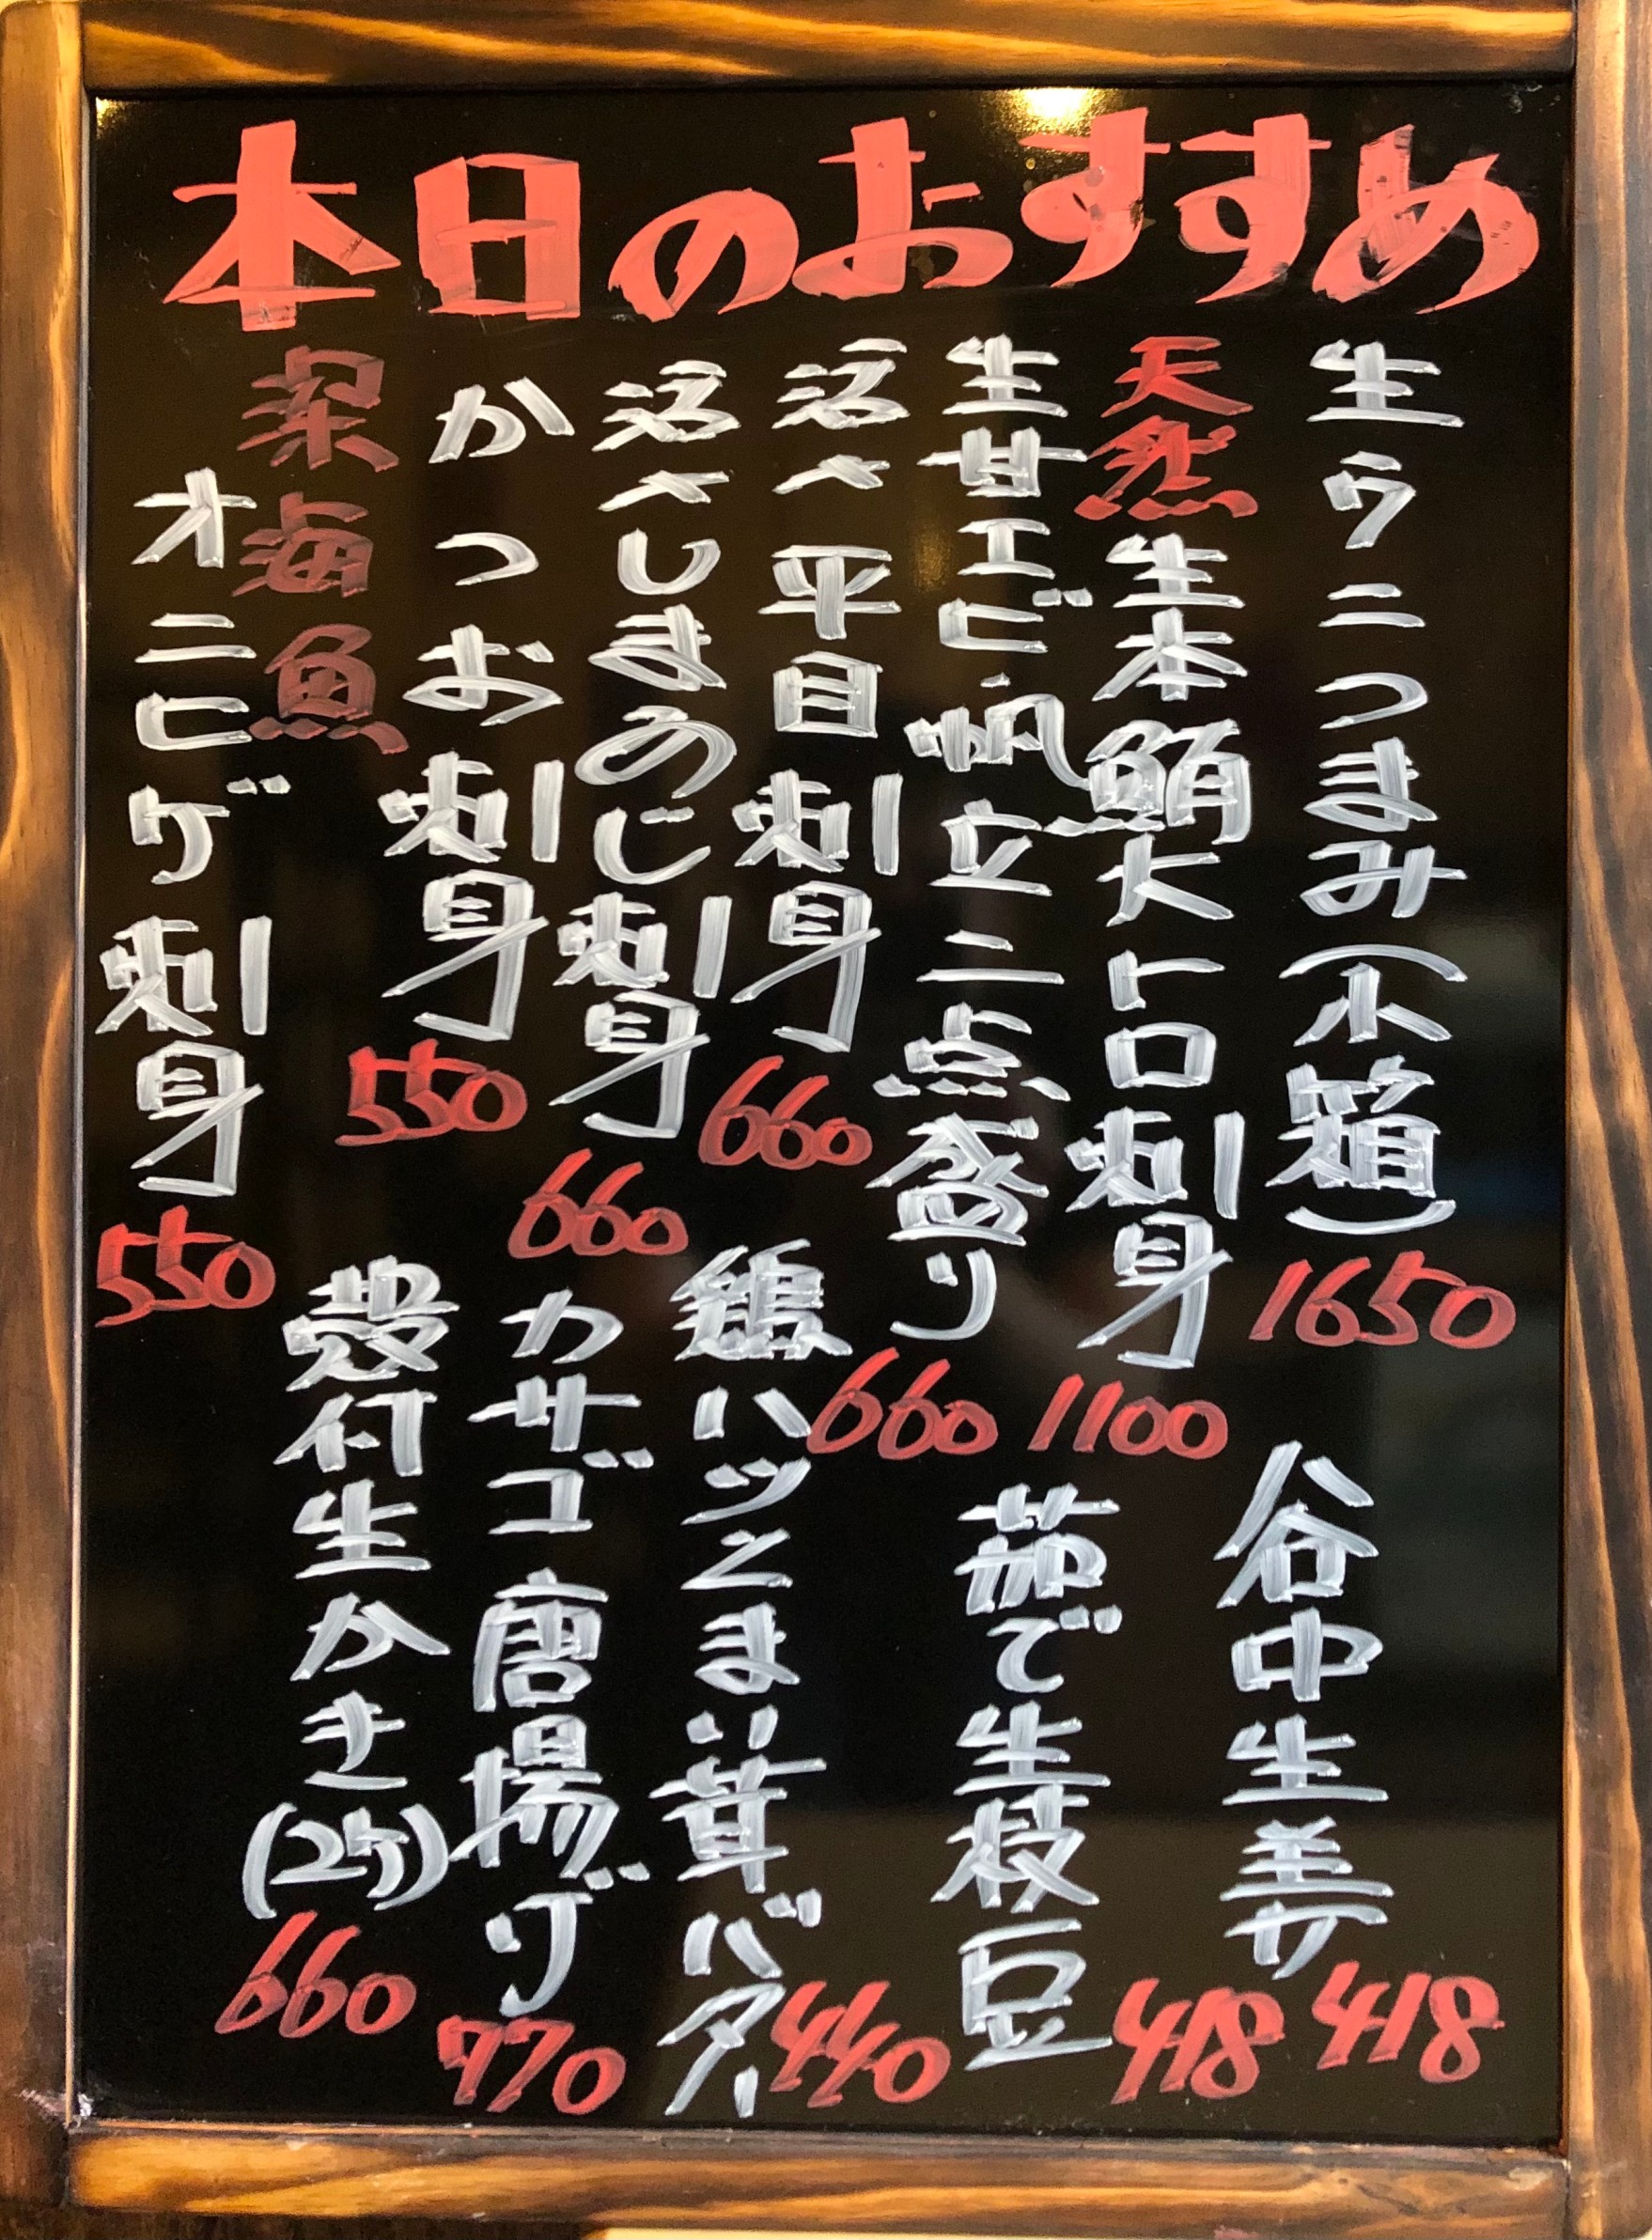 本日のおすすめ
生ウニつまみ(木箱) 1650
天然生本鮪大トロ刺身 1100
生甘エビ・帆立二点盛り 660
活〆平目刺身 660
活〆しまあじ刺身 660
かつお刺身 550
深海魚
オニヒゲ刺身 550
谷中生姜 418
茹で生枝豆 418
鶏ハツとまい茸バター 440
カサゴ唐揚げ 770
殻付生かき(2ケ) 660